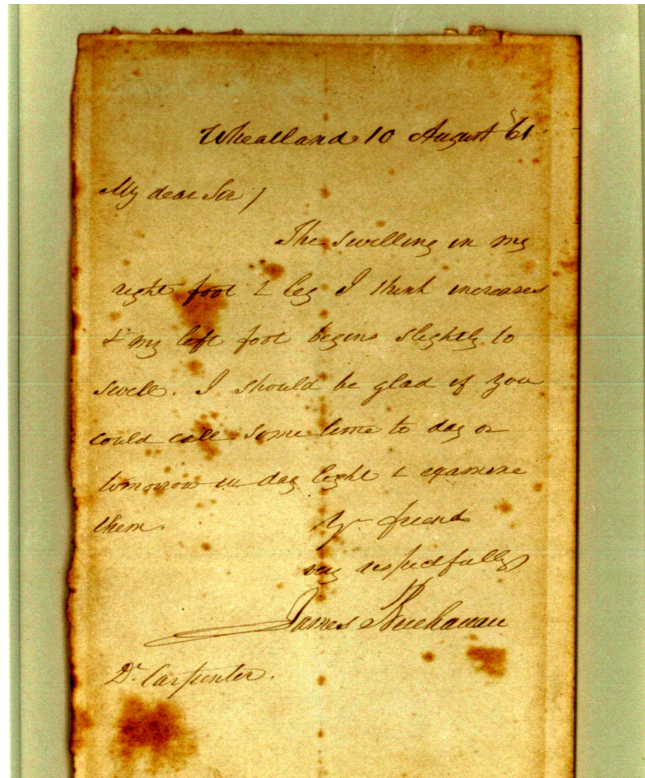 Wheatland 10 August 61
My dear Sir /
The swelling in my
right foot & leg I think increases
& my left foot begins slightly to
swell. I should be glad if you
could call some time to day or
tomorrow in day light & examine
them. Yr friend
very respectfully
James Buchanan
Dr. Carpenter.